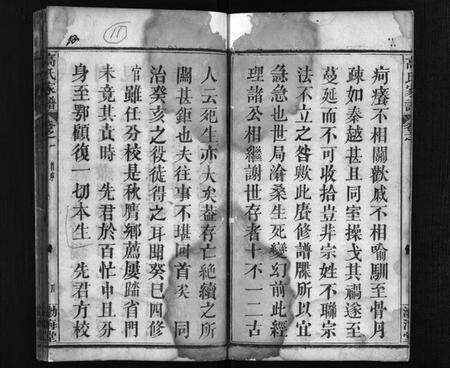 疴癢不相關歡戚不相喻馴至骨月
疎如秦越甚且同室操戈其禍遂至
蔓延而不可收拾豈非宗姓不聯宗
法不立之咎歟此賡修譜牒所以宜
亟急也世局滄桑生死變幻前此經
理諸公相繼謝世存者十不一二古
人云死生亦大矣蓋存亡絕續之所
關甚鉅也夫往事不堪回首矣 同
治癸亥之役徒得之耳聞癸巳四修
雖任分校是秋膺鄉薦屢踏省門
未竟其責時 先君於百忙中且分
身至鄂顧復一切本生 先君方校
高氏家譜
卷之一
11
渤海堂